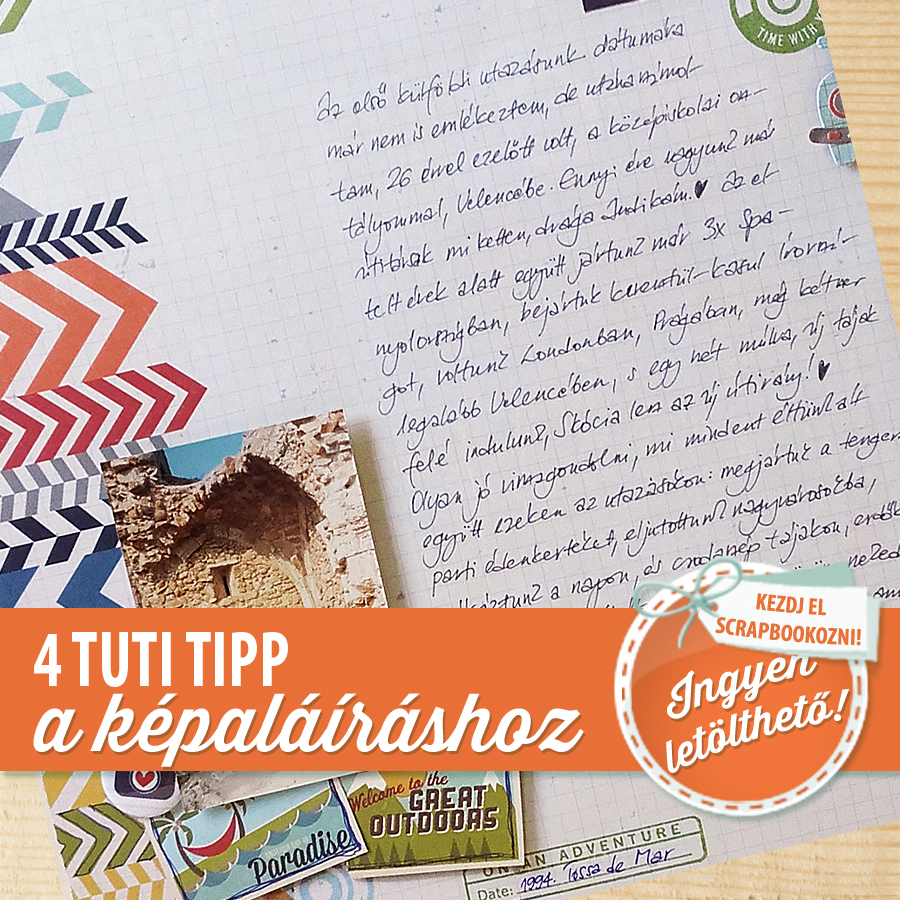 TIME WITH
Az első külföldi utazásunk dátumára
már nem is emlékeztem, de utánaszámol-
tam, 26 évvel ezelőtt volt, a középiskolai osz-
tályommal, Velencébe. Ennyi éve vagyunk már
útitársak mi ketten, drága Juditkám.♥ Az el
telt évek alatt együtt jártunk már 3x Spa-
nyolországban, bejártuk keresztül-kasul Írorszá-
got, voltunk Londonban, Prágában, még kétszer
legalább Velencében, s egy hét múlva, új tájak
felé indulunk, Skócia lesz az új útirány!♥
Olyan jó visszagondolni, mi mindent éltünk át
együtt ezeken az utazásokon: megjártuk a tenger-
parti édenkerteket, eljutottunk nagyvárosokba,
a napon, és csodaszép tájakon,
4 TUTI TIPP
a képaláíráshoz
KEZDJ EL
SCRAPBOOKOZNI!
Ingyen
letölthető!
Paradise
Welcome to the
GREAT
OUTDOORS
ON AN ADVENTURE
Date: 1994. Tossa de Mar